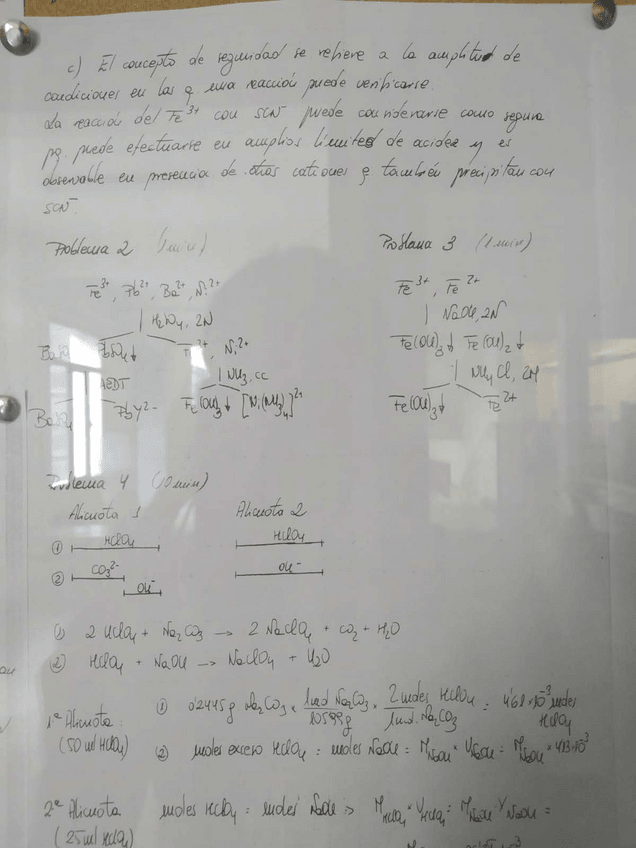 c) El concepto de seguridad se refiere a la amplitud de
condiciones en las q una reacción puede verificarse.
La reacción del Fe³⁺ con SCN⁻ puede considerarse como segura
pq. puede efectuarse en amplios límites de acidez y es
observable en presencia de otros cationes q también precipitan con
SCN⁻.
Problema 2
Fe³⁺, Pb²⁺, Ba²⁺, Ni²⁺
H₂SO₄, 2N
PbSO₄↓ Ni²⁺
AEDT NH₃, cc
PbY²⁻ Fe(OH)₃↓ [Ni(NH₃)₄]²⁺
Problema 3 (1 min)
Fe³⁺, Fe²⁺
NaOH, 2N
Fe(OH)₃↓ Fe(OH)₂↓
NH₄Cl, 2M
Fe(OH)₃↓ Fe²⁺
Problema 4
Alicuota 1 Alicuota 2
① HClO₄ HClO₄
② CO₃²⁻ OH⁻
OH⁻
① 2 HClO₄ + Na₂CO₃ → 2 NaClO₄ + CO₂ + H₂O
② HClO₄ + NaOH → NaClO₄ + H₂O
1ª Alicuota ① 0'2445 g Na₂CO₃ × 1 mol Na₂CO₃ / 105'99 g × 2 moles HClO₄ / 1 mol Na₂CO₃ = 4'61×10⁻³ moles HClO₄
(50 ml HClO₄) ② moles exceso HClO₄ = moles NaOH = M NaOH × V NaOH = M NaOH × 4'13·10⁻³
2ª Alicuota moles HClO₄ = moles NaOH => M HClO₄ × V HClO₄ = M NaOH × V NaOH =
(25 ml HClO₄)